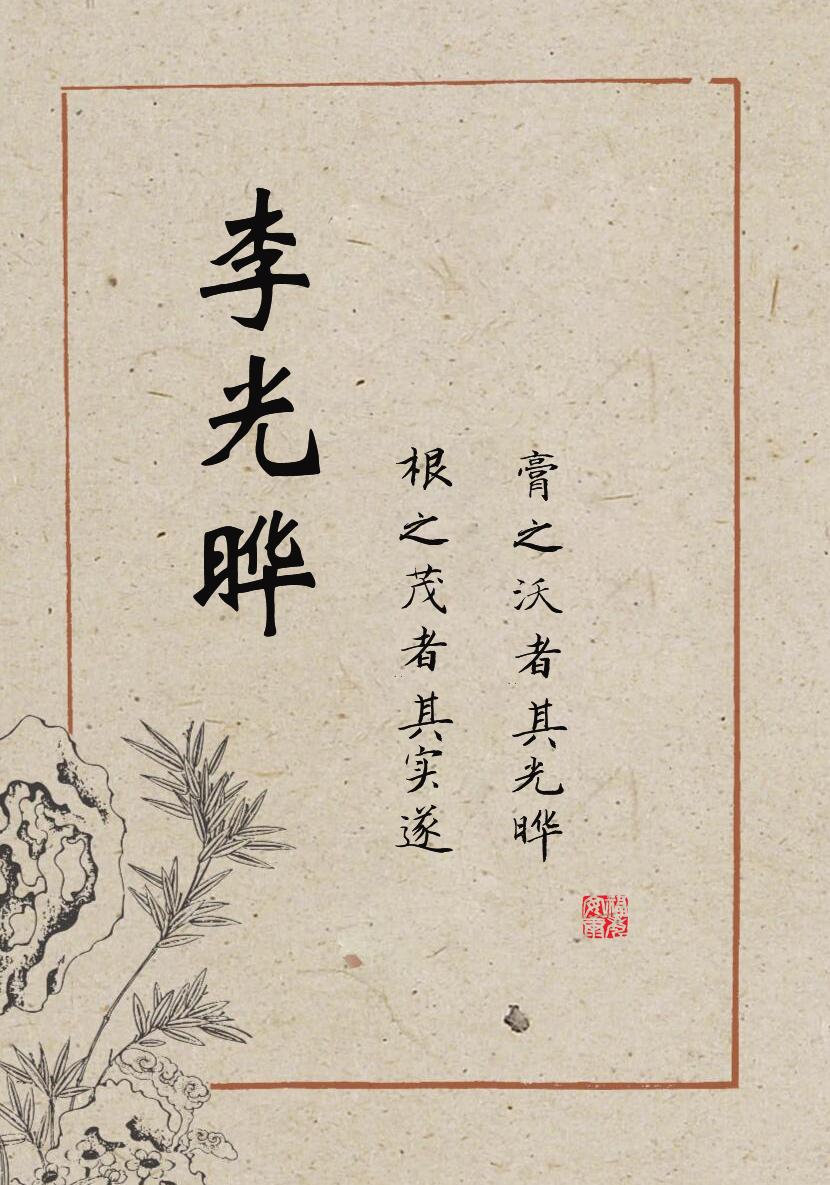 李光晔
根之茂者其实遂
膏之沃者其光晔